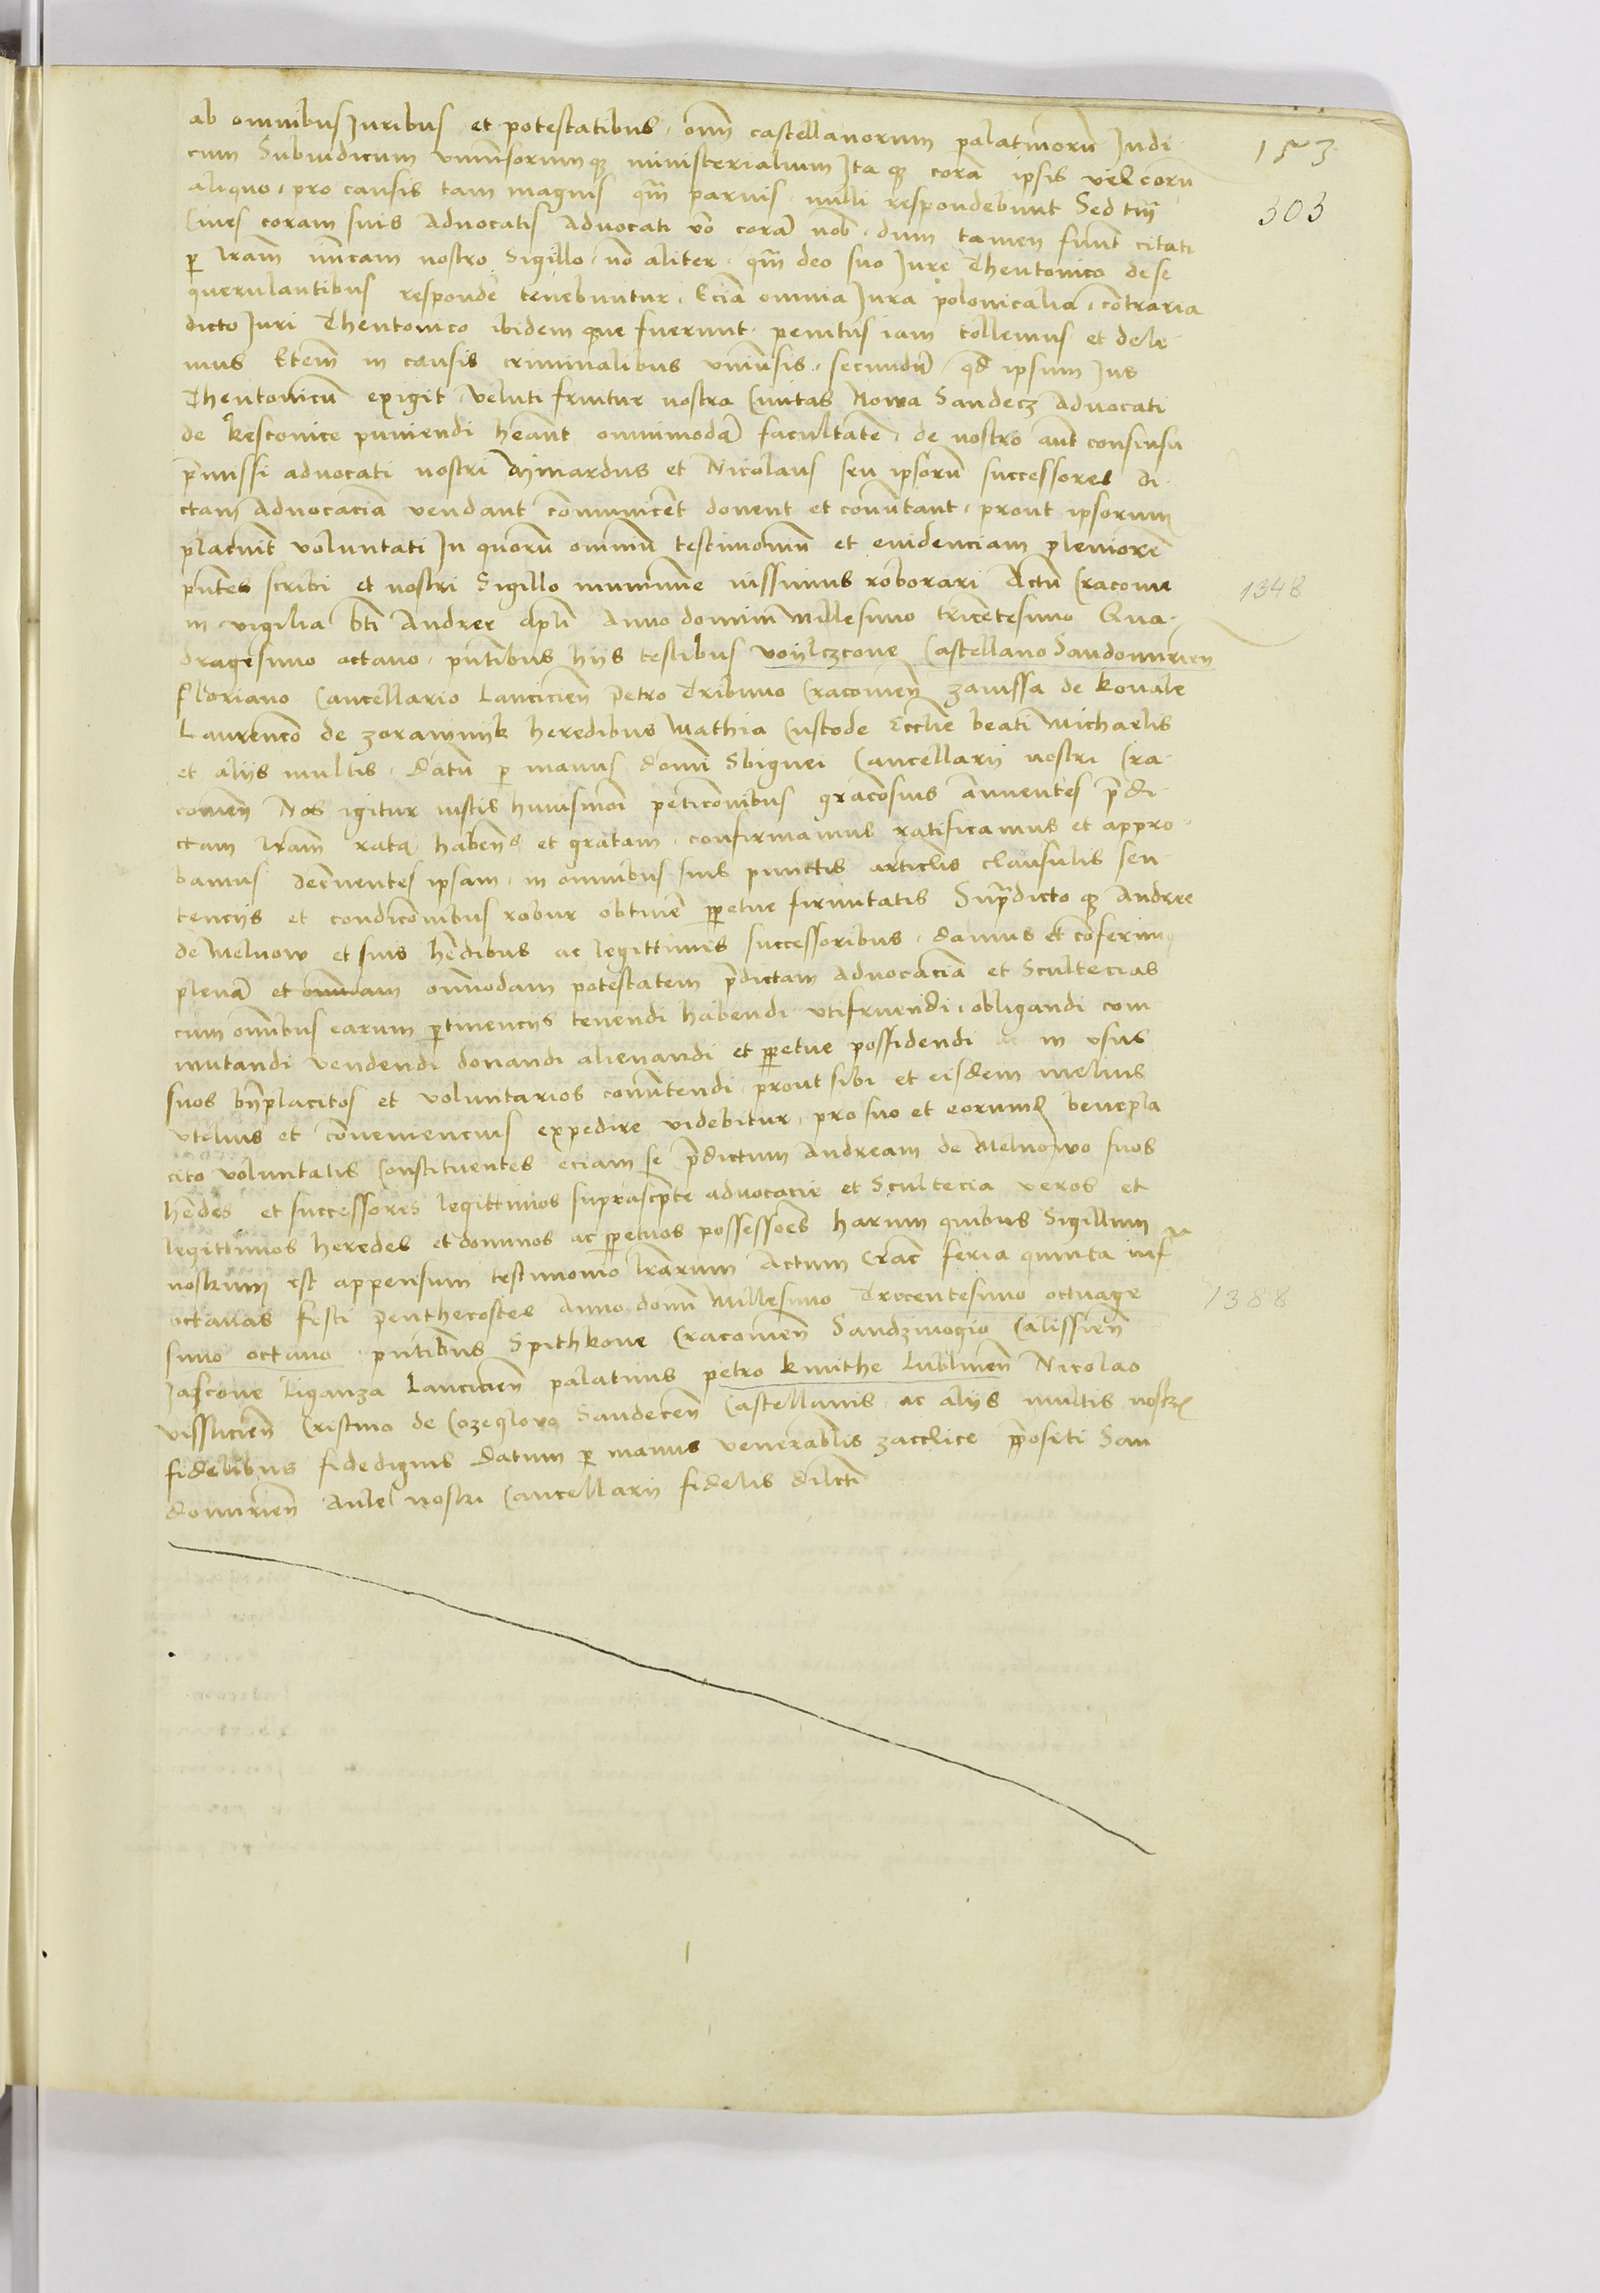 ab omnibus Juribus et potestatibus, om̅ castellanorum palatinoru̅ Judi
cum Subiudicum vniuersorumqȝ ministerialium Ita qȝ cora̅ ipsis vel eoru̅
aliquo, pro causis tam magnis qm̅ paruis nulli respondebunt Sed tm̅
Ciues coram suis Aduocatis Aduocati vo̅ cora̅ nob̅, dum tamen fuu̅t citati
p̲ lr̅am nr̅am nostro Sigillo, no̅ aliter, qm̅ de suo Jure Theutonico de se
querulantibus responde̅ tenebuntur, Ecia̅ omnia Jura polonicalia, contraria
dicto Juri Theutonico ibidem que fuerunt, penitus iam tollemus et dele
mus Ete̅m in causis criminalibus vniu̅sis, secundu̅, qd̅ ipsum Jus
Theutonicu̅ exigit, veluti fruitur nostra Ciuitas Nowa Sandecz Aduocati
de kesconice puniendi he̅ant omnimoda̅ facultate̅, de nostro aut̅ consensu
p̅missi aduocati nostri Aymardus et Nicolaus seu ipsoru̅ successores di
ctam Aduocacia̅ vendant co̅munice̅t donent et conu̅tant, prout ipsorum
placuit̅ voluntati In quoru̅ omniu̅ testimoniu̅ et euidenciam pleniore̅
pn̅tes scribi et nostri Sigillo munimine iussimus roborari Actu̅ Cracouie
in vigilia bt̅i Andree apl̅i Anno domini̅ Millesimo tricentesimo Qua
dragesimo octauo, pn̅tibus hijs testibus voijlczcone Castellano Sandomirien̅
floriano Cancellario Lancicien̅ Petro Tribuno Cracouien̅ zauissa de kouale
Laurenco̅ de zorawnijk heredibus Mathia Custode Eccl̅ie beati Michaelis
et alijs multis, Datu̅ p̲ manus domi̅ Sbignei Cancellarij nostri Cra
couien̅ Nos igitur iustis huiusmo̅i peticio̅nibus gracio̅sius annuentes p̅di
ctam lr̅am rata̅ haben̅s et gratam, confirmamus ratificamus et appro
bamus dece̅nentes ipsam, in omnibus suis punctis articl̅is clausulis sen
tencijs et condicio̅nibus robur obtine̅ p̲petue firmitatis Sup̅dicto qȝ Andree
de Melnow et suis he̅dibus ac legittimis successoribus, damus et confe̅rimꝰ
plena̅ et omniam omi̅modam potestatem p̅dictam Aduocacia̅ et Scultecias
cum omi̅bus earum p̲tinencijs tenendi habendi vtifruendi, obligandi com
mutandi vendendi donandi alienandi et p̲petue possidendi ac in vsus
suos bn̅placitos et voluntarios conu̅tendi, prout sibi et eisdem melius
vtilius et conueniencius expedire videbitur, pro suo et eorumd̅ benepla
cito voluntatis Constituentes eciam se p̅dictum Andream de Melnowo suos
he̅des et successores legittimos suprascp̅te aduocacie et Scultecia veros et
legittimos heredes et dominos ac p̲petuos possessores̅ harum quibus Sigillum
nostrum est appensum testimonio lr̅arum Actum Crac̅ feria quinta infra
octauas festi penthecostes Anno domi̅ Millesimo Trecentesimo octuage
simo octauo pn̅tibus Spithkone Cracouien̅ Sandziuogio Calissien̅
Jascone liganza Lancicien̅ palatinis petro kmithe Lublinen̅ Nicolao
vissliciен̅ Cristino de Cozeglowy Sandecen̅ Castellanis, ac alijs multis nostris
fidelibus fidedignis Datum p̲ manus venerabl̅is zacclice p̲positi San
domirien̅ Aule nostri Cancellarij fidelis dilc̅ti
153
303
1348
1388